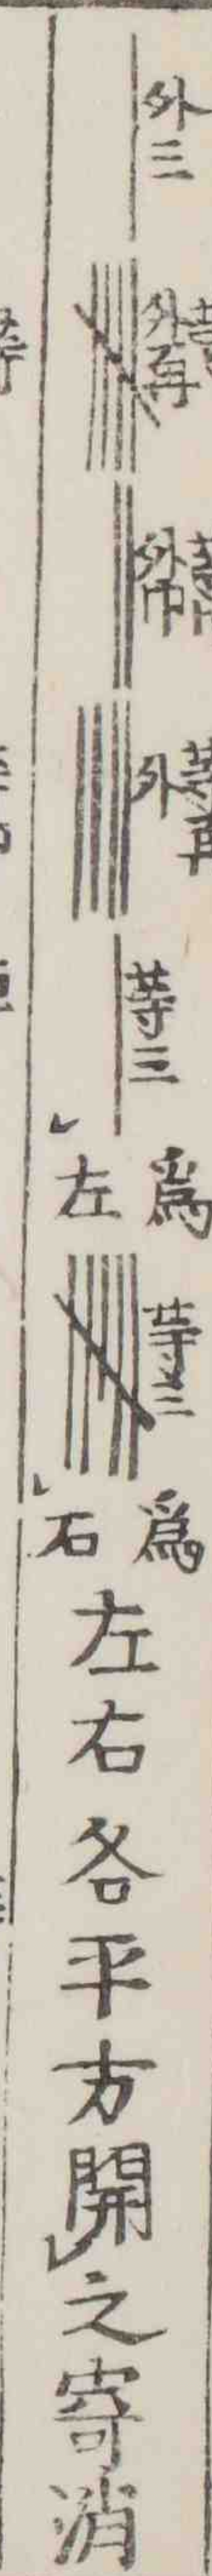 外三
外再等
外巾等巾
外等再
等三
為左
等三
為右
左右各平方開之寄消